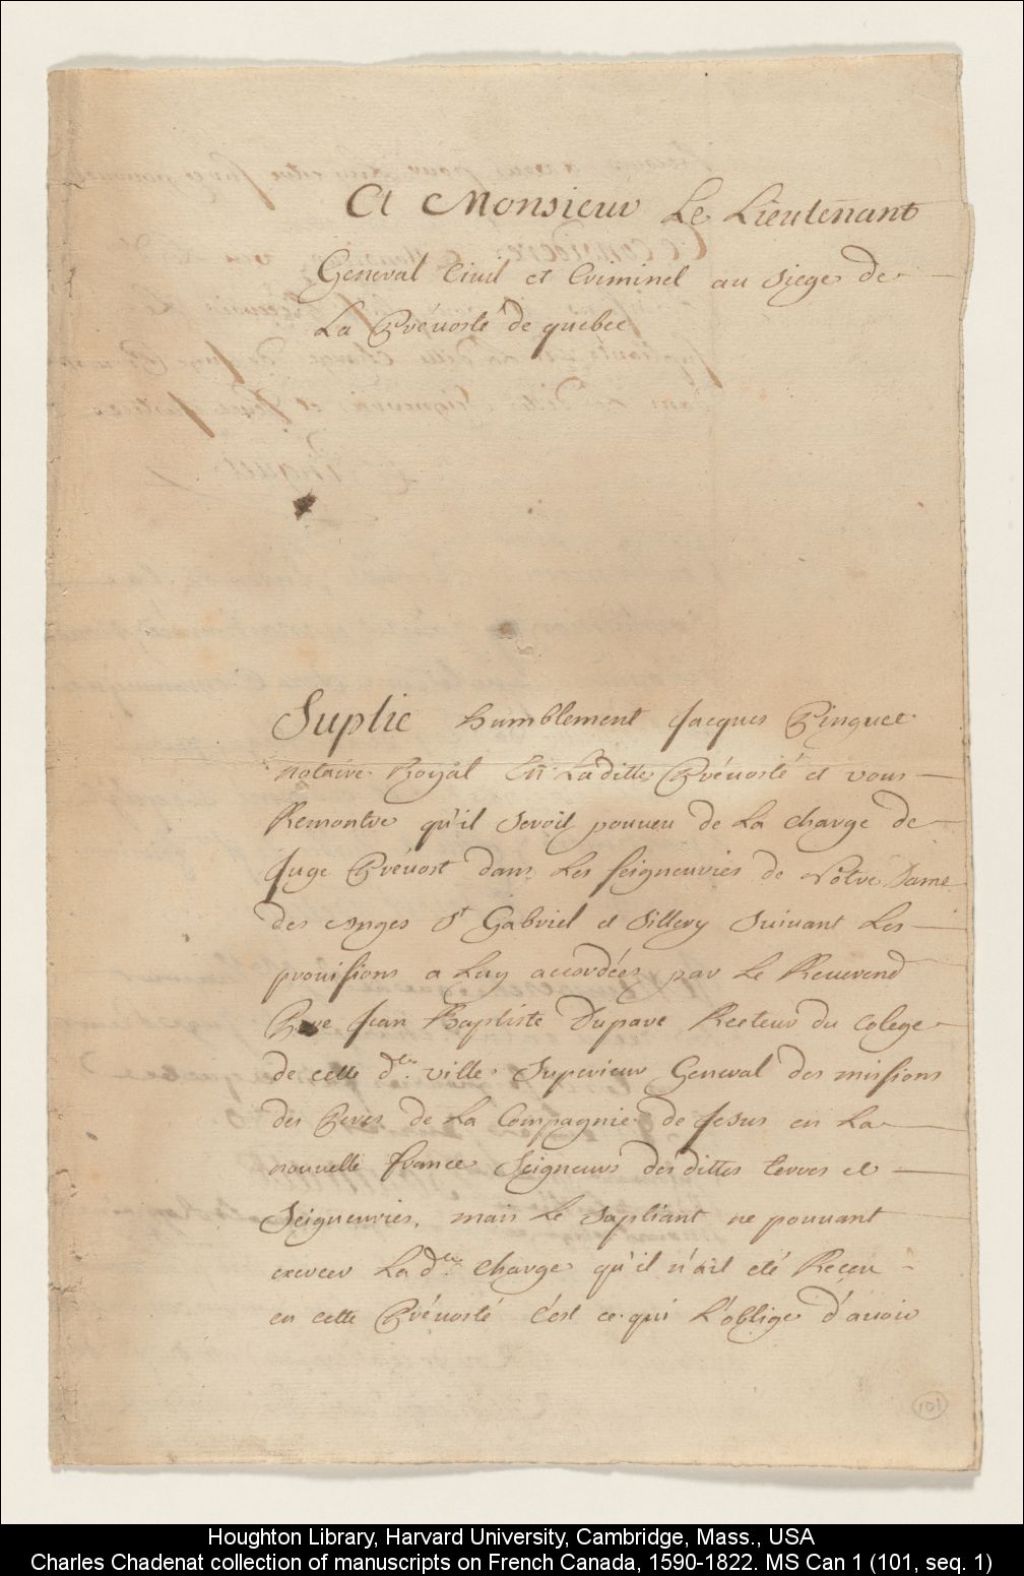 A Monsieur Le Lieutenant
General Civil et Criminel au Siege de
La Prévosté de quebec
Suplie humblement Jacques Pinguet
notaire Royal En Laditte Prévosté et vous
Remontre qu'il seroit pouveu de La charge de
Juge Prévost dans Les Seigneuries de Nôtre Dame
des Anges St Gabriel et Sillery Suivant Les
provisions a Luy accordées par Le Reverend
Pere Jean Baptiste Duparc Recteur du Colege
de cette dte. ville Superieur General des missions
des Peres de La Compagnie de Jesus en La
nouvelle france Seigneurs des dittes terres et
Seigneuries, mais Le Supliant ne pouvant
exercer La dte. charge qu'il n'ait eté Reçeu
en cette Prévosté c'est ce qui L'oblige d'avoir
101
Houghton Library, Harvard University, Cambridge, Mass., USA
Charles Chadenat collection of manuscripts on French Canada, 1590-1822. MS Can 1 (101, seq. 1)